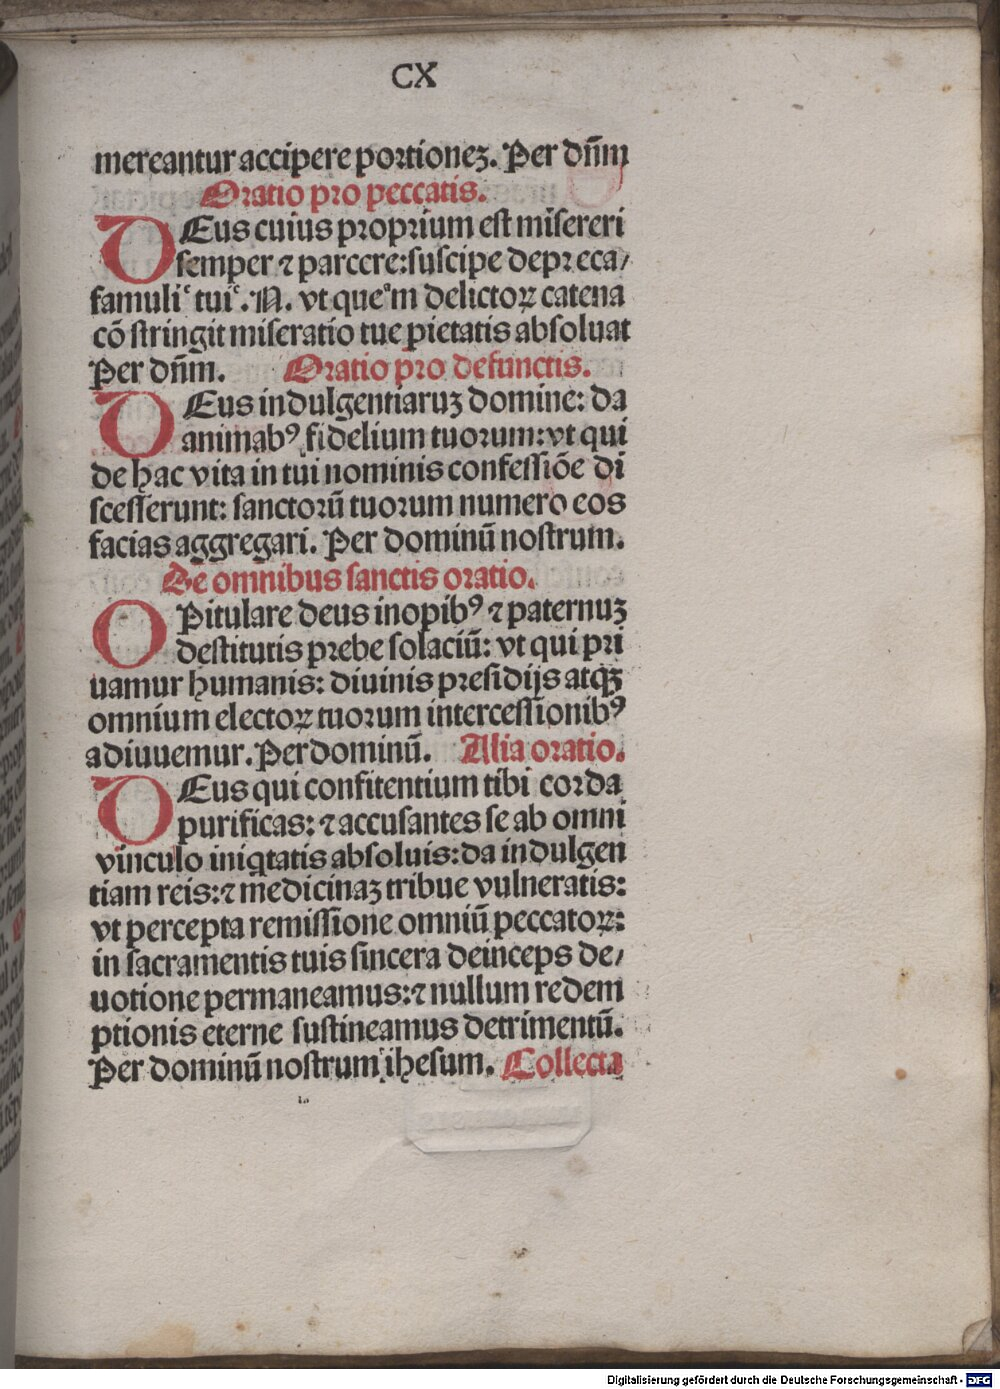 CX
mereantur accipere portioneꝫ. Per dn̄m
Oratio pro peccatis.
DEus cuius proprium est misereri
semper ⁊ parcere:suscipe depreca/
famuliͨ tuiͨ. N. vt queͣm delictoꝝ catena
cōstringit miseratio tue pietatis absoluat
Per dn̄m. Oratio pro defunctis.
DEus indulgentiaruꝫ domine: da
animabꝰ fidelium tuorum:vt qui
de hac vita in tui nominis confessiōe di
scesserunt: sanctorū tuorum numero eos
facias aggregari. Per dominū nostrum.
De omnibus sanctis oratio.
OPitulare deus inopibꝰ ⁊ paternuꝫ
destitutis prebe solaciū: vt qui pri
uamur humanis: diuinis presidijs atqꝫ
omnium electoꝝ tuorum intercessionibꝰ
adiuuemur. Per dominū. Alia oratio.
DEus qui confitentium tibi corda
purificas: ⁊ accusantes se ab omni
vinculo iniqtatis absoluis:da indulgen
tiam reis:⁊ medicinaꝫ tribue vulneratis:
vt percepta remissione omniū peccatoꝝ:
in sacramentis tuis sincera deinceps de/
uotione permaneamus:⁊ nullum redem
ptionis eterne sustineamus detrimentū.
Per dominū nostrum ihesum. Collecta
Digitalisierung gefördert durch die Deutsche Forschungsgemeinschaft - DFG